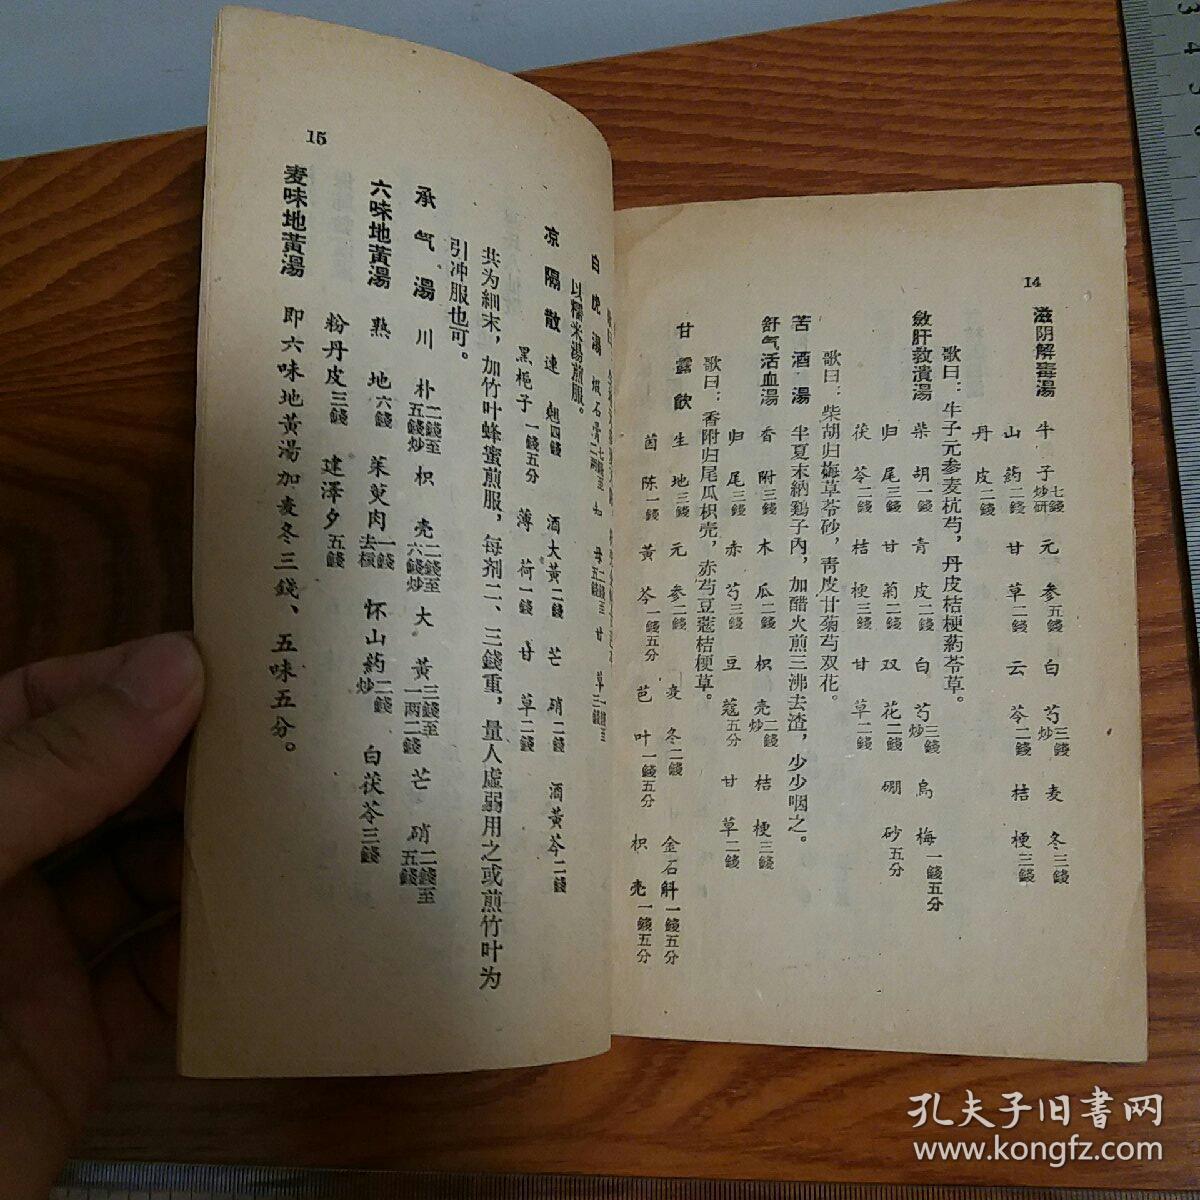 14
滋阴解毒湯 牛子七錢炒研 元参五錢 白芍三錢炒 麦冬三錢
山葯二錢 甘草二錢 云苓二錢 桔梗三錢
丹皮二錢
歌曰：牛子元参麦杭芍，丹皮桔梗葯苓草。
斂肝救潰湯 柴胡一錢 青皮二錢 白芍三錢炒 烏梅一錢五分
归尾三錢 甘菊二錢 双花二錢 硼砂五分
茯苓二錢 桔梗三錢 甘草二錢
歌曰：柴胡归梅草苓砂，青皮甘菊芍双花。
苦酒湯 半夏末納鷄子內，加醋火煎三沸去渣，少少咽之。
舒气活血湯 香附三錢 木瓜二錢 枳壳二錢炒 桔梗三錢
归尾三錢 赤芍三錢 豆蔻五分 甘草二錢
歌曰：香附归尾瓜枳壳，赤芍豆蔻桔梗草。
甘露飲 生地三錢 元参二錢 麦冬二錢 金石斛一錢五分
茵陈一錢 黃芩一錢五分 芭叶一錢五分 枳壳一錢五分
15
白虎湯 煅石膏 知母 甘草
以糯米湯煎服。
凉隔散 連翹四錢 酒大黃二錢 芒硝二錢 酒黃芩二錢
黑梔子一錢五分 薄荷一錢 甘草二錢
共为細末，加竹叶蜂蜜煎服，每剂二、三錢重，量人虛弱用之或煎竹叶为
引冲服也可。
承气湯 川朴二錢至五錢炒 枳壳二錢至六錢炒 大黃三錢至一兩二錢 芒硝二錢至五錢
六味地黃湯 熟地六錢 茱萸肉一錢去核 怀山葯二錢炒 白茯苓三錢
粉丹皮三錢 建泽夕五錢
麦味地黃湯 即六味地黃湯加麦冬三錢、五味五分。
孔夫子旧書网
www.kongfz.com